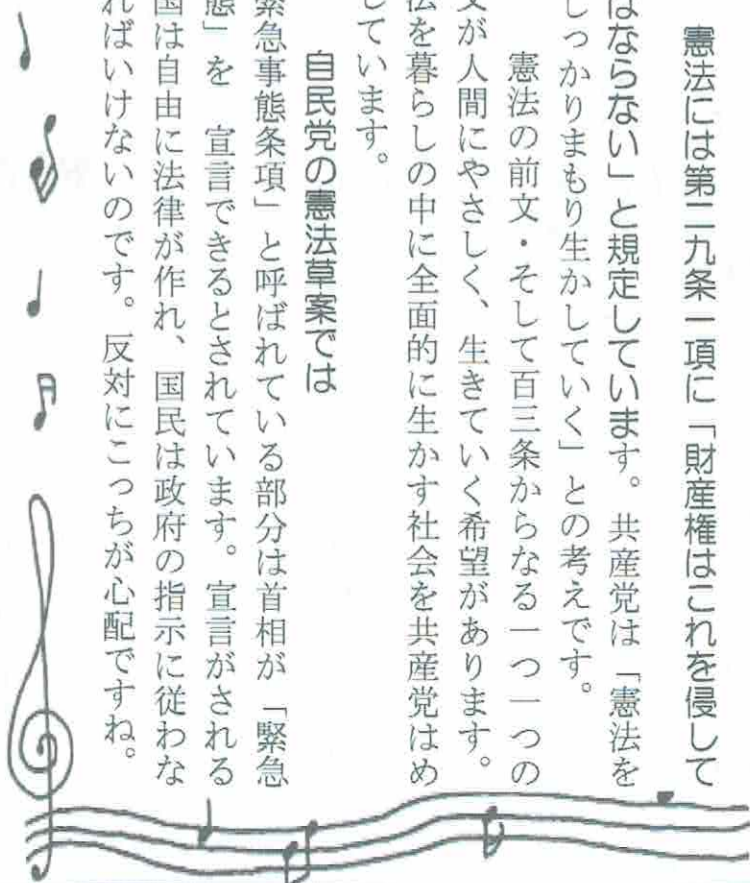 憲法には第二九条一項に「財産権はこれを侵して
はならない」と規定しています。共産党は「憲法を
しっかりまもり生かしていく」との考えです。
憲法の前文・そして百三条からなる一つ一つの
文が人間にやさしく、生きていく希望があります。
法を暮らしの中に全面的に生かす社会を共産党はめ
しています。
自民党の憲法草案では
緊急事態条項」と呼ばれている部分は首相が「緊急
態」を 宣言できるとされています。宣言がされる
国は自由に法律が作れ、国民は政府の指示に従わな
ればいけないのです。反対にこっちが心配ですね。